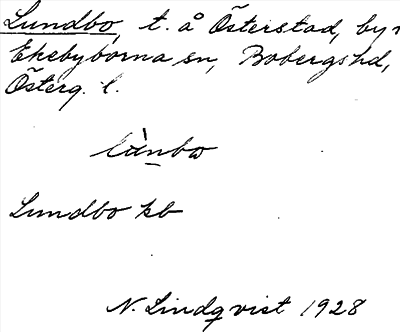 Lundbo, t. å Österstad, by i
Ekebyborna sn, Bobergs hd,
Österg. l.
lùnbω
Lundbo kb
N. Lindqvist 1928